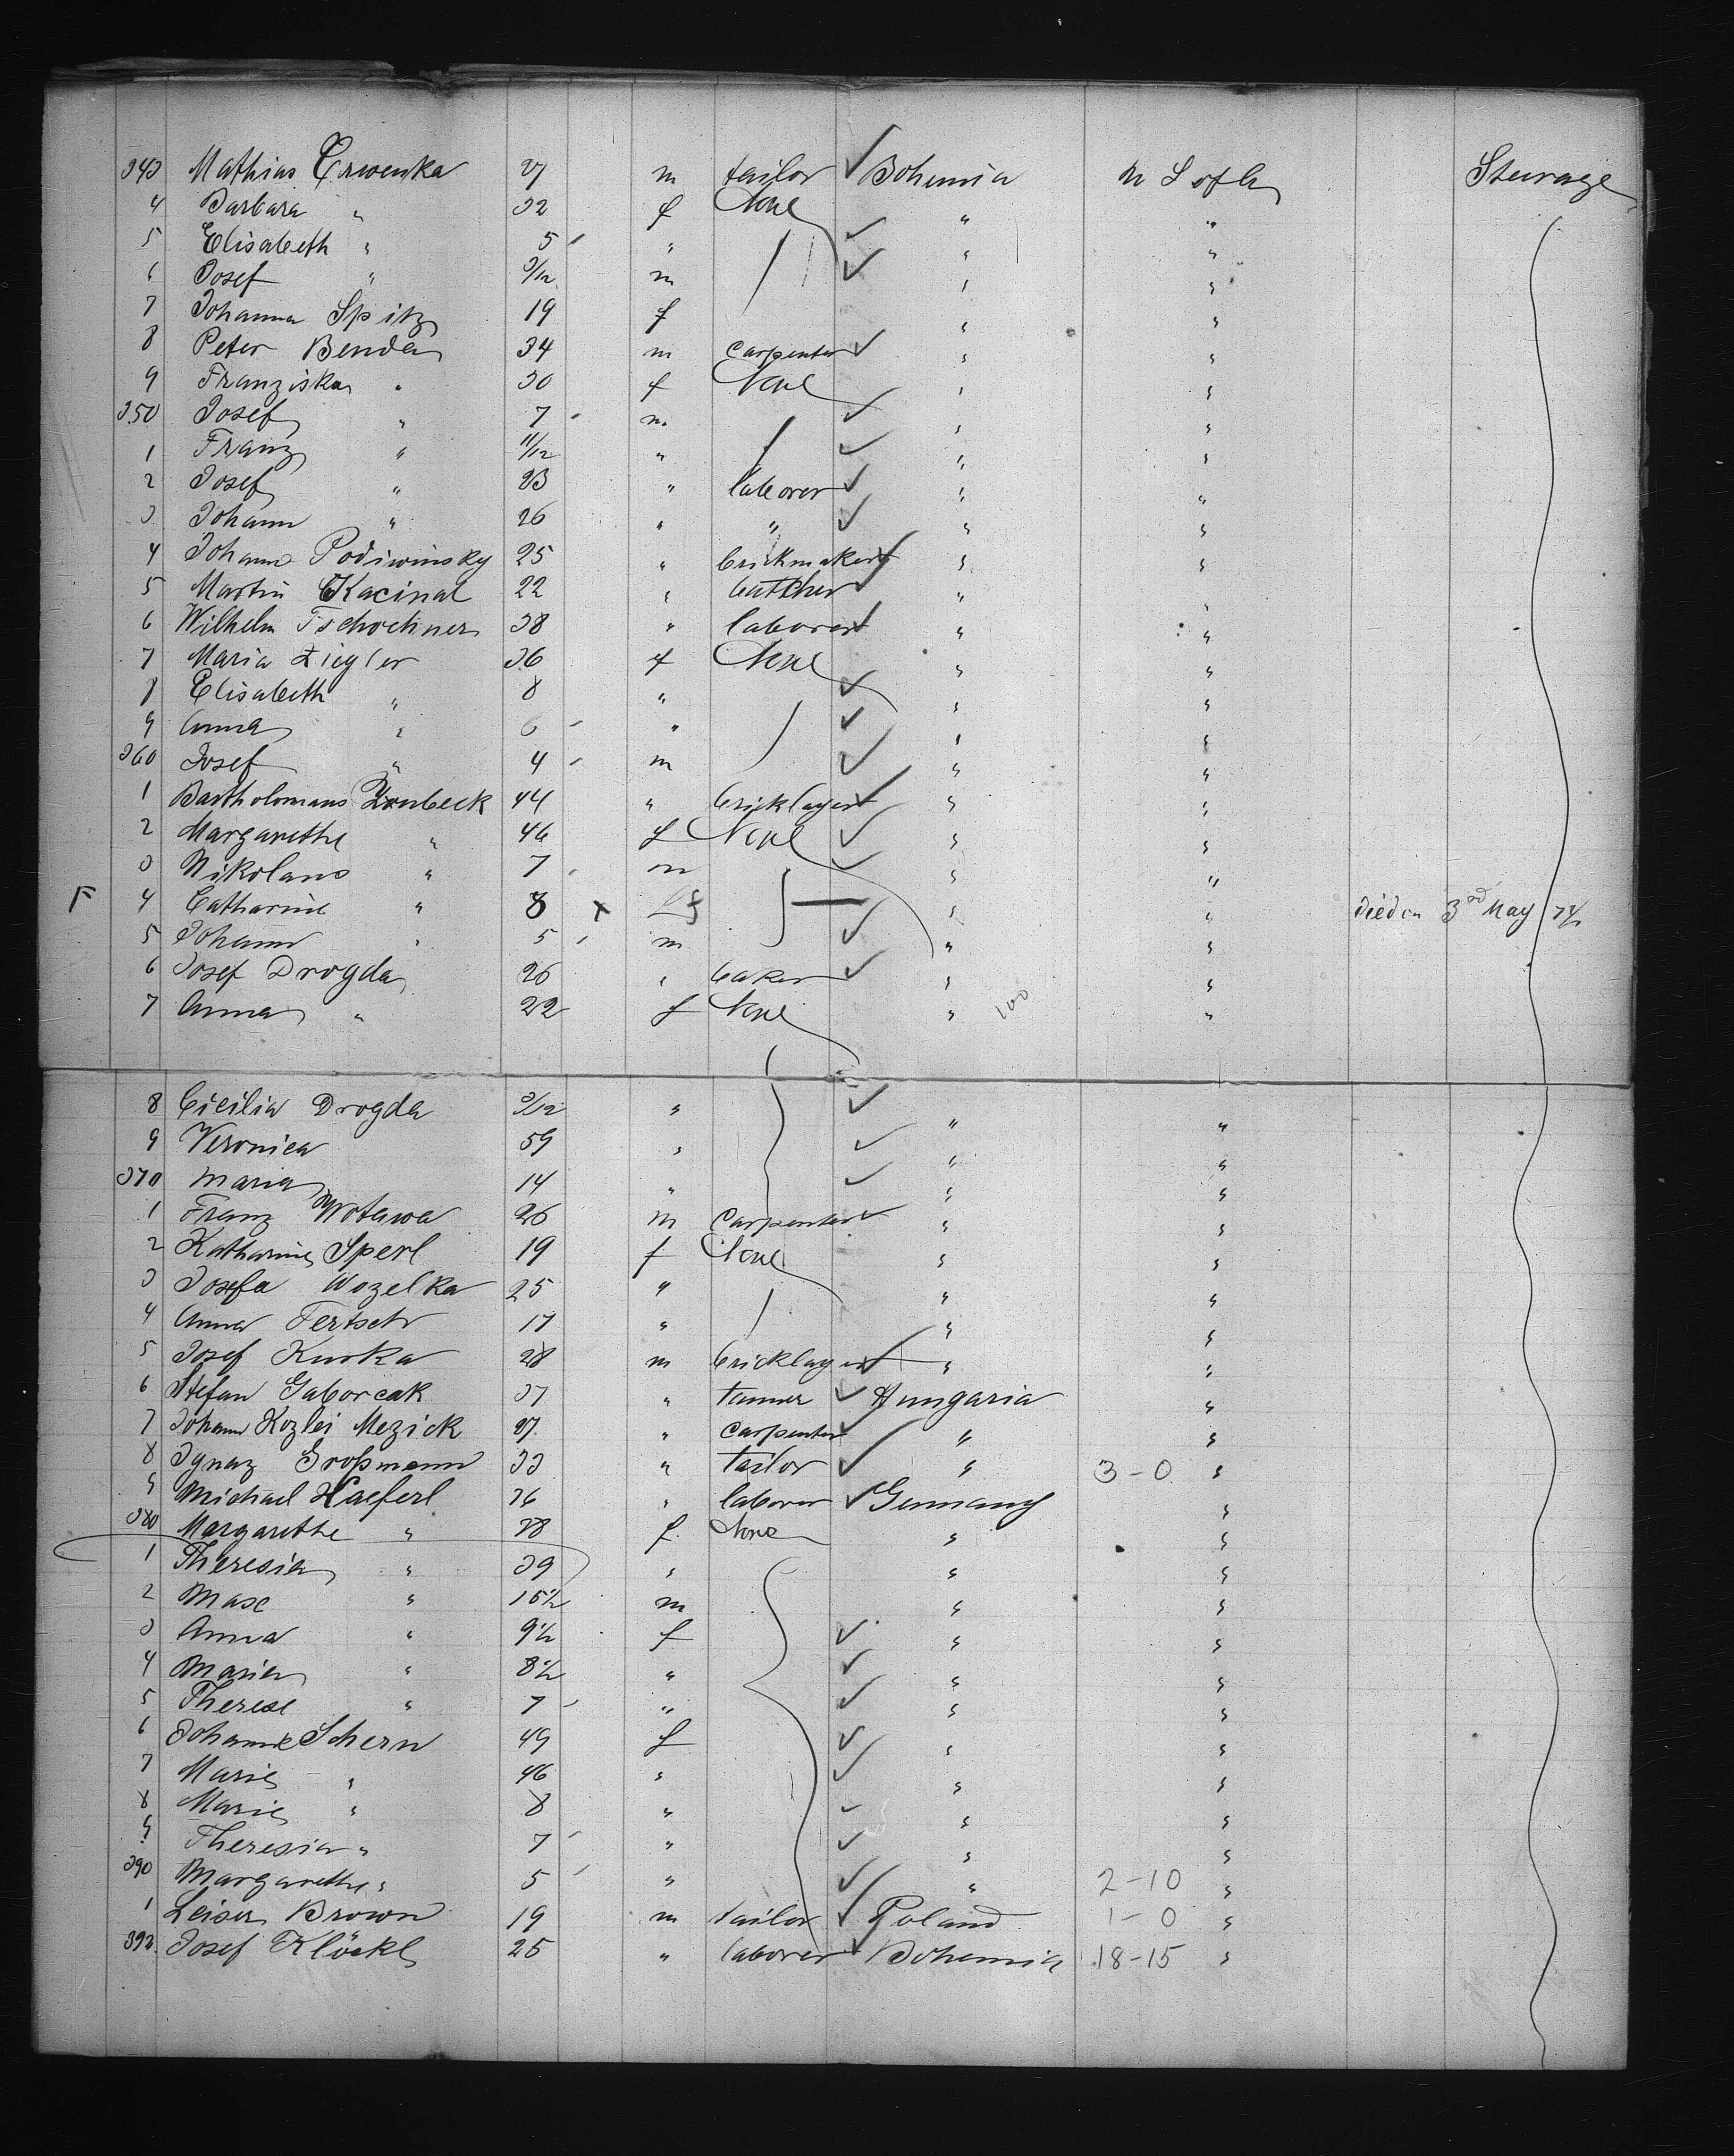 343 Mathias Crwenka 27 m tailor Bohemia U S of A Steerage
4 Barbara " 32 f None " "
5 Elisabeth " 5 " " "
6 Josef " 3/12 m " "
7 Johanna Spitz 19 f " "
8 Peter Benda 34 m carpenter " "
9 Franziska " 30 f None " "
350 Josef " 7 m " "
1 Franz " 11/12 " " "
2 Josef " 23 " laborer " "
3 Johann " 26 " " " "
4 Johann Podiwinsky 25 " brickmaker " "
5 Martin Kacinal 22 " butcher " "
6 Wilhelm Tschochner 38 " laborer " "
7 Maria Ziegler 36 f None " "
8 Elisabeth " 8 " " "
9 Anna " 6 " " "
360 Josef " 4 m " "
1 Bartholomaus 44 " bricklayer " "
2 Margarethe " 46 f None " "
3 Nikolaus " 7 m " "
F 4 Catharine " 8 x f " " died on 3rd May /74
5 Johann " 5 m " "
6 Josef Drogda 26 " baker " "
7 Anna " 22 f None " 100 "
8 Cicilia Drogda 3/12 " " "
9 Veronica 59 " " "
370 Maria 14 " " "
1 Franz Wotawa 26 m carpenter " "
2 Katharine Sperl 19 f None " "
3 Josefa Wozelka 25 " " "
4 Anna Fertsch 17 " " "
5 Josef Kurka 28 m bricklayer " "
6 Stefan Gaborcak 37 " tanner Hungaria "
7 Johann Kozlei Mezick 27 " carpenter " "
8 Ignaz Großmann 33 " tailor " 3-0 "
9 Michael Haeferl 36 " laborer Germany "
380 Margarethe " 38 f. None " "
1 Theresia " 39 " " "
2 Max " 15 1/2 m " "
3 Anna " 9 1/2 f " "
4 Maria " 8 1/2 " " "
5 Therese " 7 " " "
6 Johanne Schern 49 f " "
7 Marie " 46 " " "
8 Marie " 8 " " "
9 Theresia " 7 " " "
390 Margarethe " 5 " " 2-10 "
1 Leiser Brown 19 m tailor Poland 1-0 "
392. Josef Klöckl 25 " laborer Bohemia 18-15 "